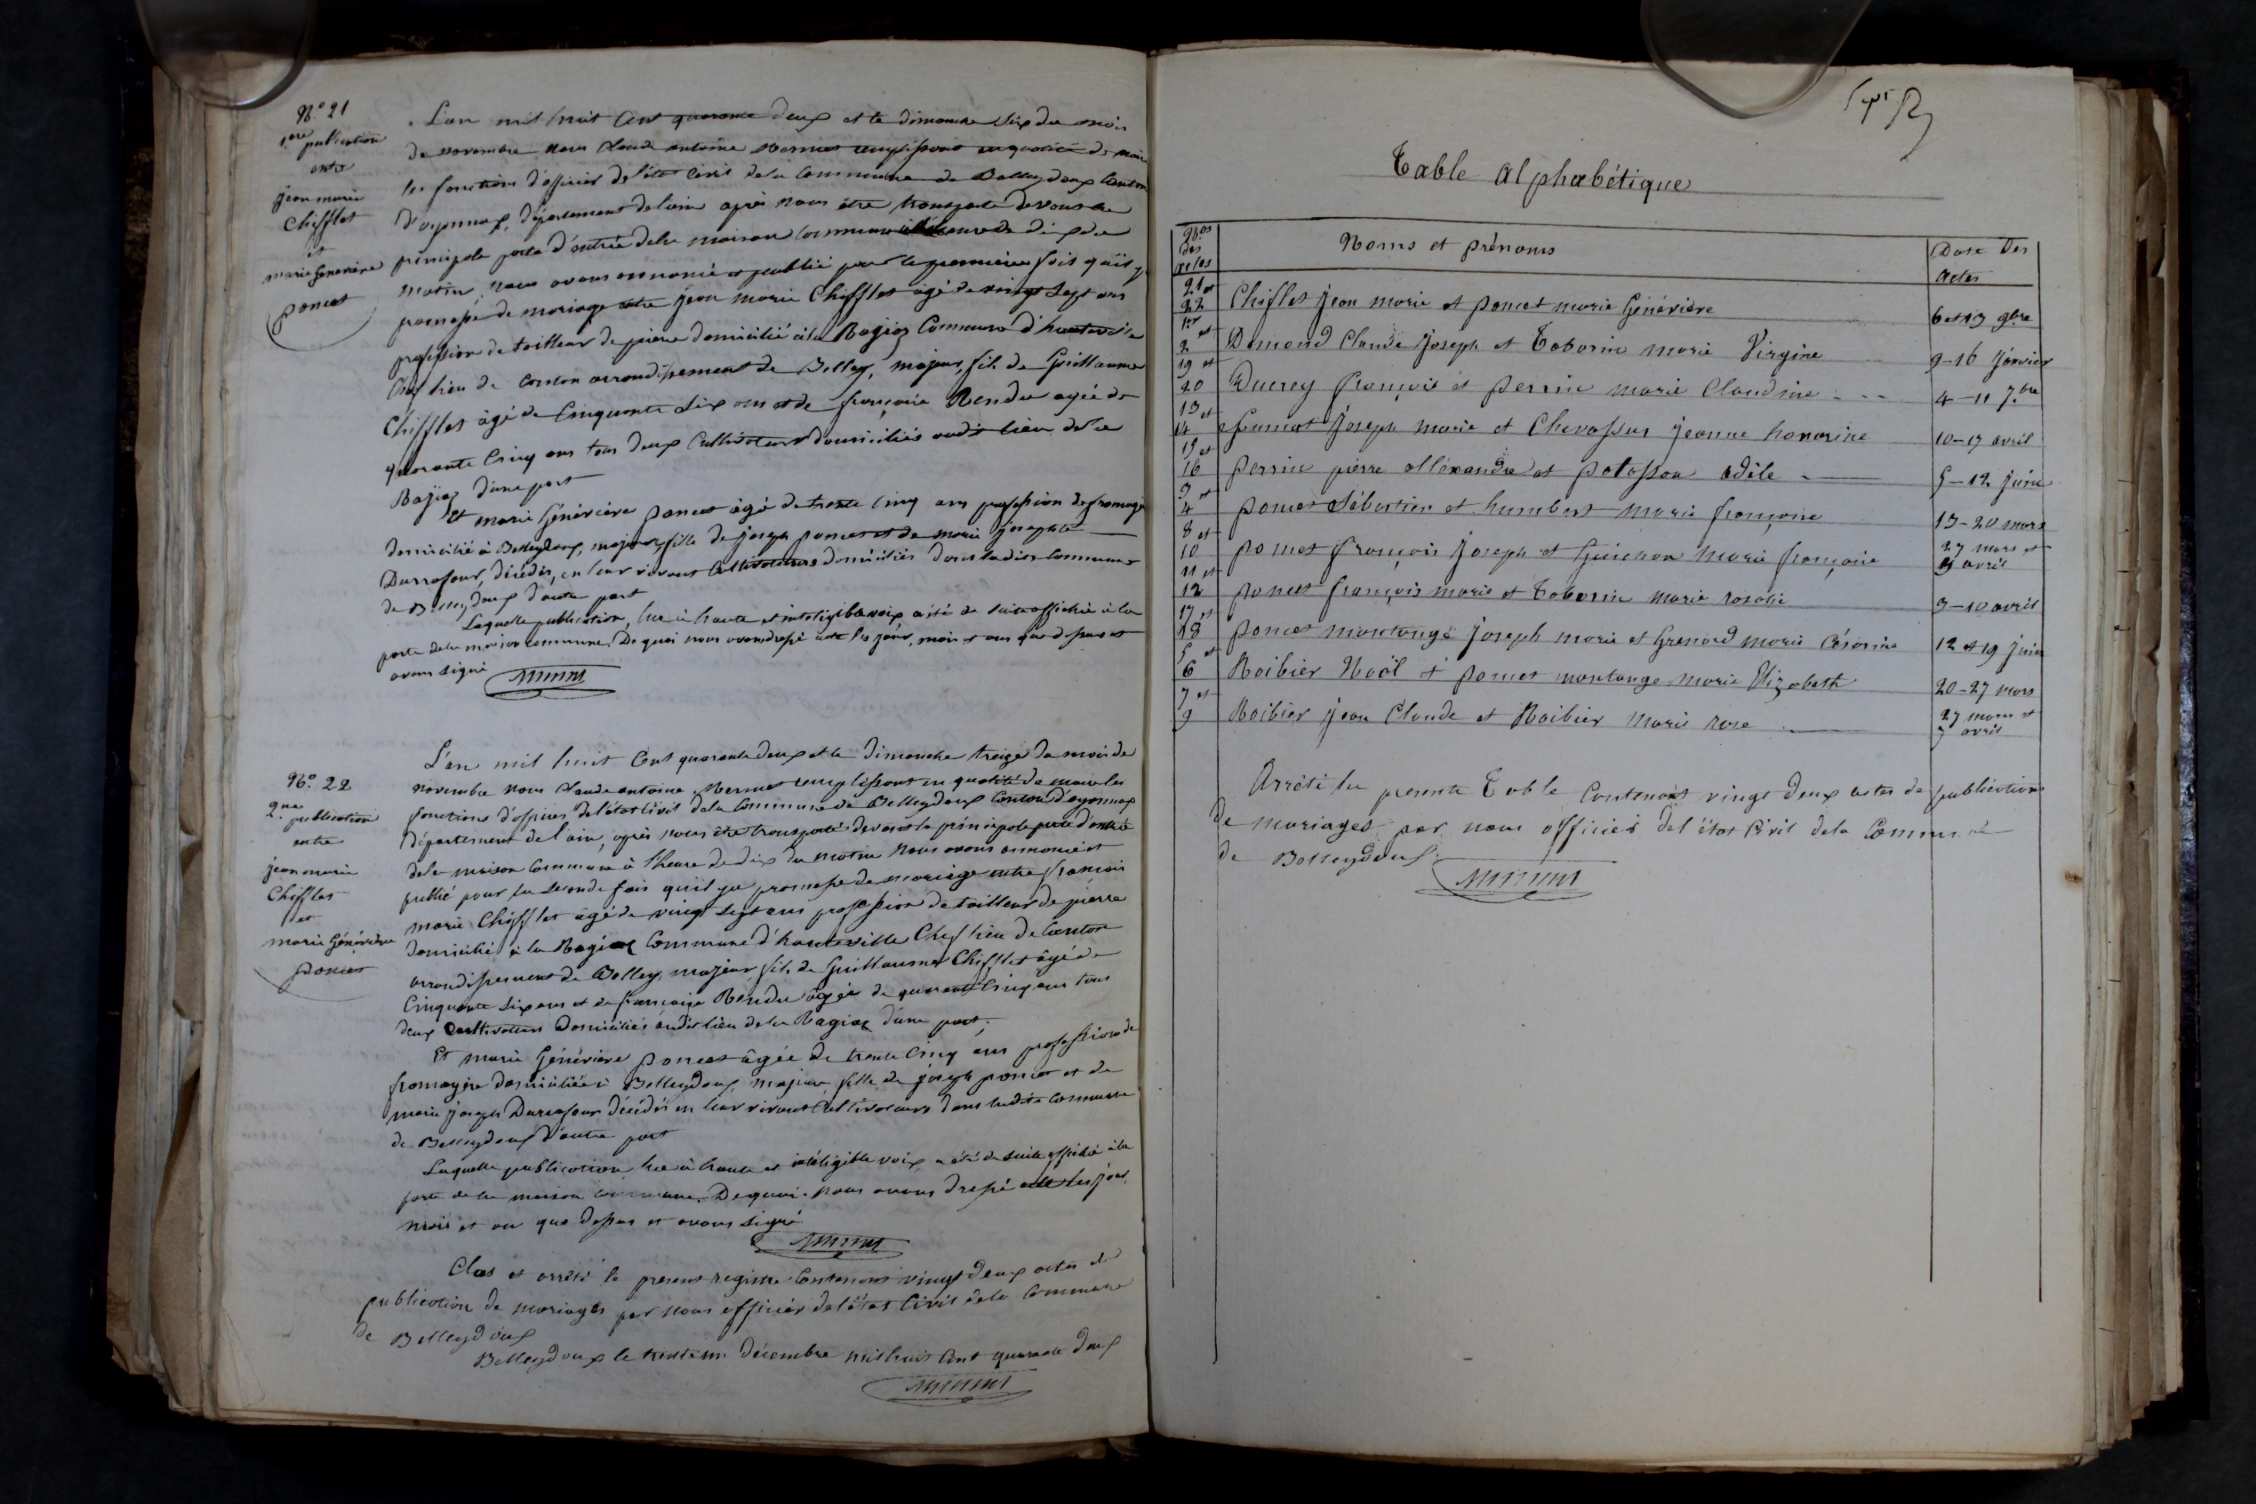 N.o 21
1.ere publication
entre
jean marie
Chifflet
et
marie Genevière
poncet
L'an mil huit cent quarante deux et le dimanche six du mois
de novembre nous Claude antoine Mermet remplissant en qualité de maire
les fonctions d'officier de l'état civil de la Commune de Belleydoux Canton
d'oyonnax, département de l'ain après nous être transporté devant la
principale porte d'entrée de la maison commune à l'heure de dix du
matin, nous avons annoncé et publié pour la première fois qu'il y a
promesse de mariage entre jean marie Chifflet âgé de vingt sept ans
profession de tailleur de pierre domicilié à la Ragiaz Commune d'hauteville
Chef lieu de canton arrondissement de Belley, majeur, fils de Guillaume
Chifflet âgé de Cinquante six ans et de françoise Rendu agée de
quarante Cinq ans tous deux Cultivateurs domiciliés audit lieu de la
Ragiaz d'une part
Et marie Génévière poncet âgé de trente cinq ans profession de fromagé
domicilié à Belleydoux, majeure, fille de joseph poncet et de marie josephte
Durrafour, décédés, en leur vivant Cultivateurs domiciliés dans ladite Commune
de Belleydoux d'autre part
Laquelle publication, lue à haute et intelligible voix a été de suite affichée à la
porte de la maison commune. De quoi nous avons dressé acte les jour, mois et an que dessus et
avons signé
Mermet
N.o 22
2.me publication
entre
jean marie
Chifflet
et
marie Génévière
poncet
L'an mil huit Cent quarante deux et le dimanche treize du mois de
novembre nous Claude antoine Mermet remplissant en qualité de maire les
fonctions d'officier de l'état Civil de la Commune de Belleydoux Canton d'oyonnax
département de l'ain, après nous être transporté devant la principale porte d'entrée
de la maison Commune à l'heure de dix du matin nous avons annoncé et
publié pour la seconde fois qu'il y a promesse de mariage entre françois
marie Chifflet âgé de vingt sept ans profession de tailleur de pierre
domicilié à la Ragiaz Commune d'hauteville Chef lieu de Canton
arrondissement de Belley, majeur fils de Guillaume Chifflet âgé de
Cinquante six ans et de françoise Rendu âgée de quarante Cinq ans tous
deux Cultivateurs domiciliés audit lieu de la Ragiaz d'une part;
Et marie Génévière poncet âgée de trente Cinq ans profession de
fromagère domiciliée à Belleydoux majeure fille de joseph poncet et de
marie joseph Durrafour décédés en leur vivant Cultivateurs dans ladite Commune
de Belleydoux d'autre part
Laquelle publication lue à haute et intelligible voix, a été de suite affichée à la
porte de la maison commune. De quoi nous avons dressé acte les jour,
mois et an que dessus et avons signé
Mermet
Clos et arrêté le présent registre Contenant vingt deux actes de
publication de mariages par nous officier de l'état Civil de la Commune
de Belleydoux
Belleydoux le trente un décembre mil huit Cent quarante deux
Mermet
Table alphabétique
N.os des actes
Noms et prénoms
Date des actes
21 et 22 Chiflet jean marie et poncet marie Génévière 6 et 13 9bre
1er et 2 Demond Claude Joseph et Taborin marie Virgine 9-16 janvier
19 et 20 Ducrey françois et perrin marie Claudine 4-11 7.bre
13 et 14 Joseph marie et Chevassus jeanne honorine 10-17 avril
15 et 16 perrin pierre alléxandre et polosson adèle 5-12 juin
3 et 4 poncet Sébastien et humbert marie françoise 13-20 mars
8 et 10 poncet françois Joseph et Guichon marie françoise 27 mars et 3 avril
11 et 12 poncet françois marie et Taborin marie rosalie 3-10 avril
17 et 18 poncet montange joseph marie et Grenard marie Césarine 12 et 19 juin
5 et 6 Roibier Noël et poncet montange marie Elizabeth 20-27 mars
7 et 9 Roibier jean Claude et Roibier marie rose 27 mars et 3 avril
Arrêté la présente Table Contenant vingt deux actes de publication
de mariages par nous officier de l'état Civil de la Commune
de Belleydoux.
Mermet